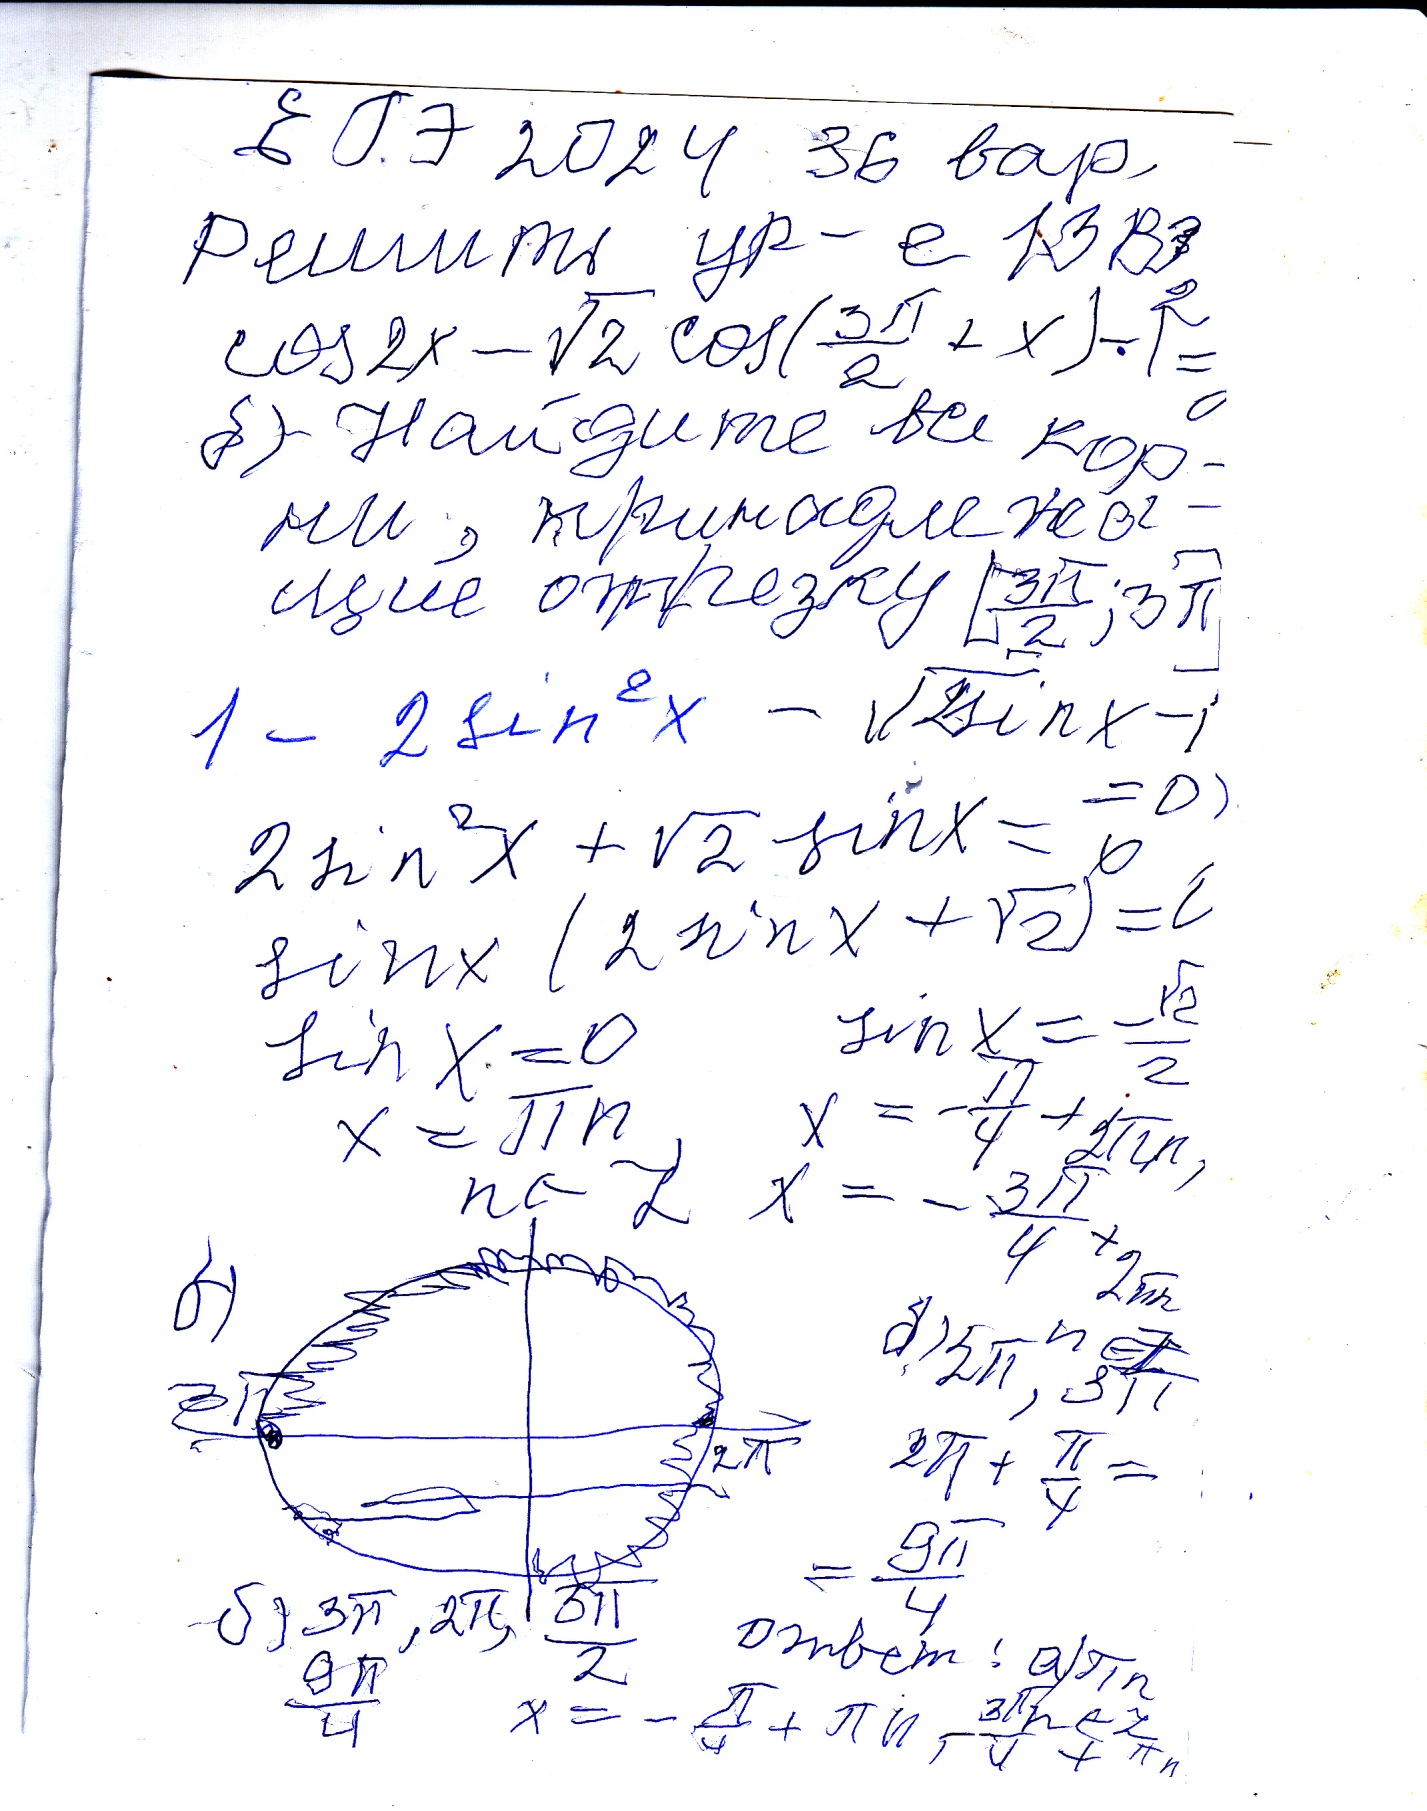 ЕГЭ 2024 36 вар.
Решить ур-е 13 В3
cos2x - √2 cos(3π/2 + x) - 1 = 0
б) Найдите все кор-
ни, принадлежа-
щие отрезку [3π/2; 3π]
1 - 2 sin²x - √2 sinx - 1
= 0)
2 sin²x + √2 sinx = 0
sinx (2 sinx + √2) = 0
sin x = 0 sinx = -√2/2
x = πn, x = -π/4 + 2πn,
n ∈ Z x = -3π/4 + 2πn
n ∈ Z
б)
б) 2π, 3π
3π
2π
2π + π/4 =
= 9π/4
б) 3π, 2π, 3π/2
9π/4
Ответ: а) πn
x = -π/4 + πn, -3π/4 + πn n ∈ Z